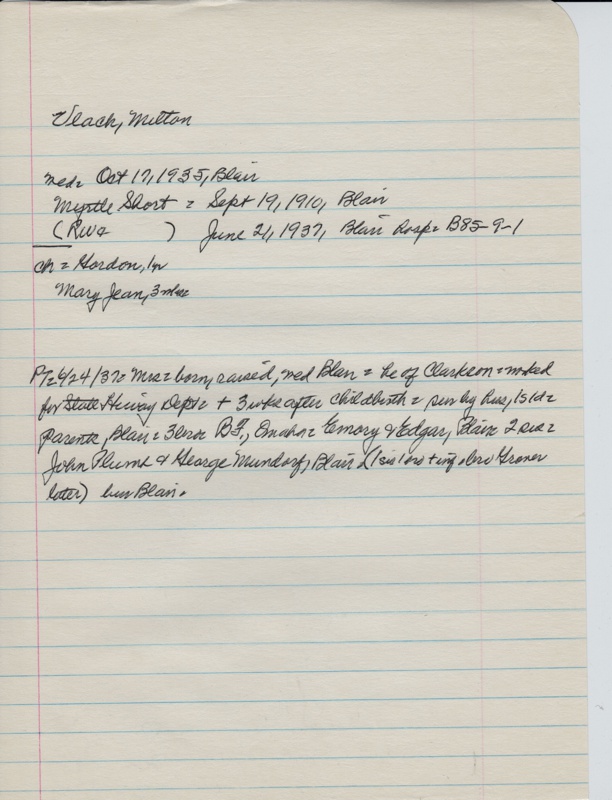 Veach, Milton
med= Oct 17, 1935, Blair
Myrtle Short = Sept 19, 1910, Blair
(RW& ) June 21, 1937, Blair Hosp= B85-9-1
ch = Gordon, 1yr
Mary Jean, 3 wks
PT= 6/24/37= Mrs= born, raised, med Blair = he of Clarkson = wked
for State Hiway Dept= + 3 wks after childbirth = surv by hus, 1s 1d=
Parents, Blair = 3 bros B.F., Omaha= Emory & Edgar, Blair 2 sis=
John Plume & George Mundorf, Blair (1 sis + inf bro
later) bur Blair.